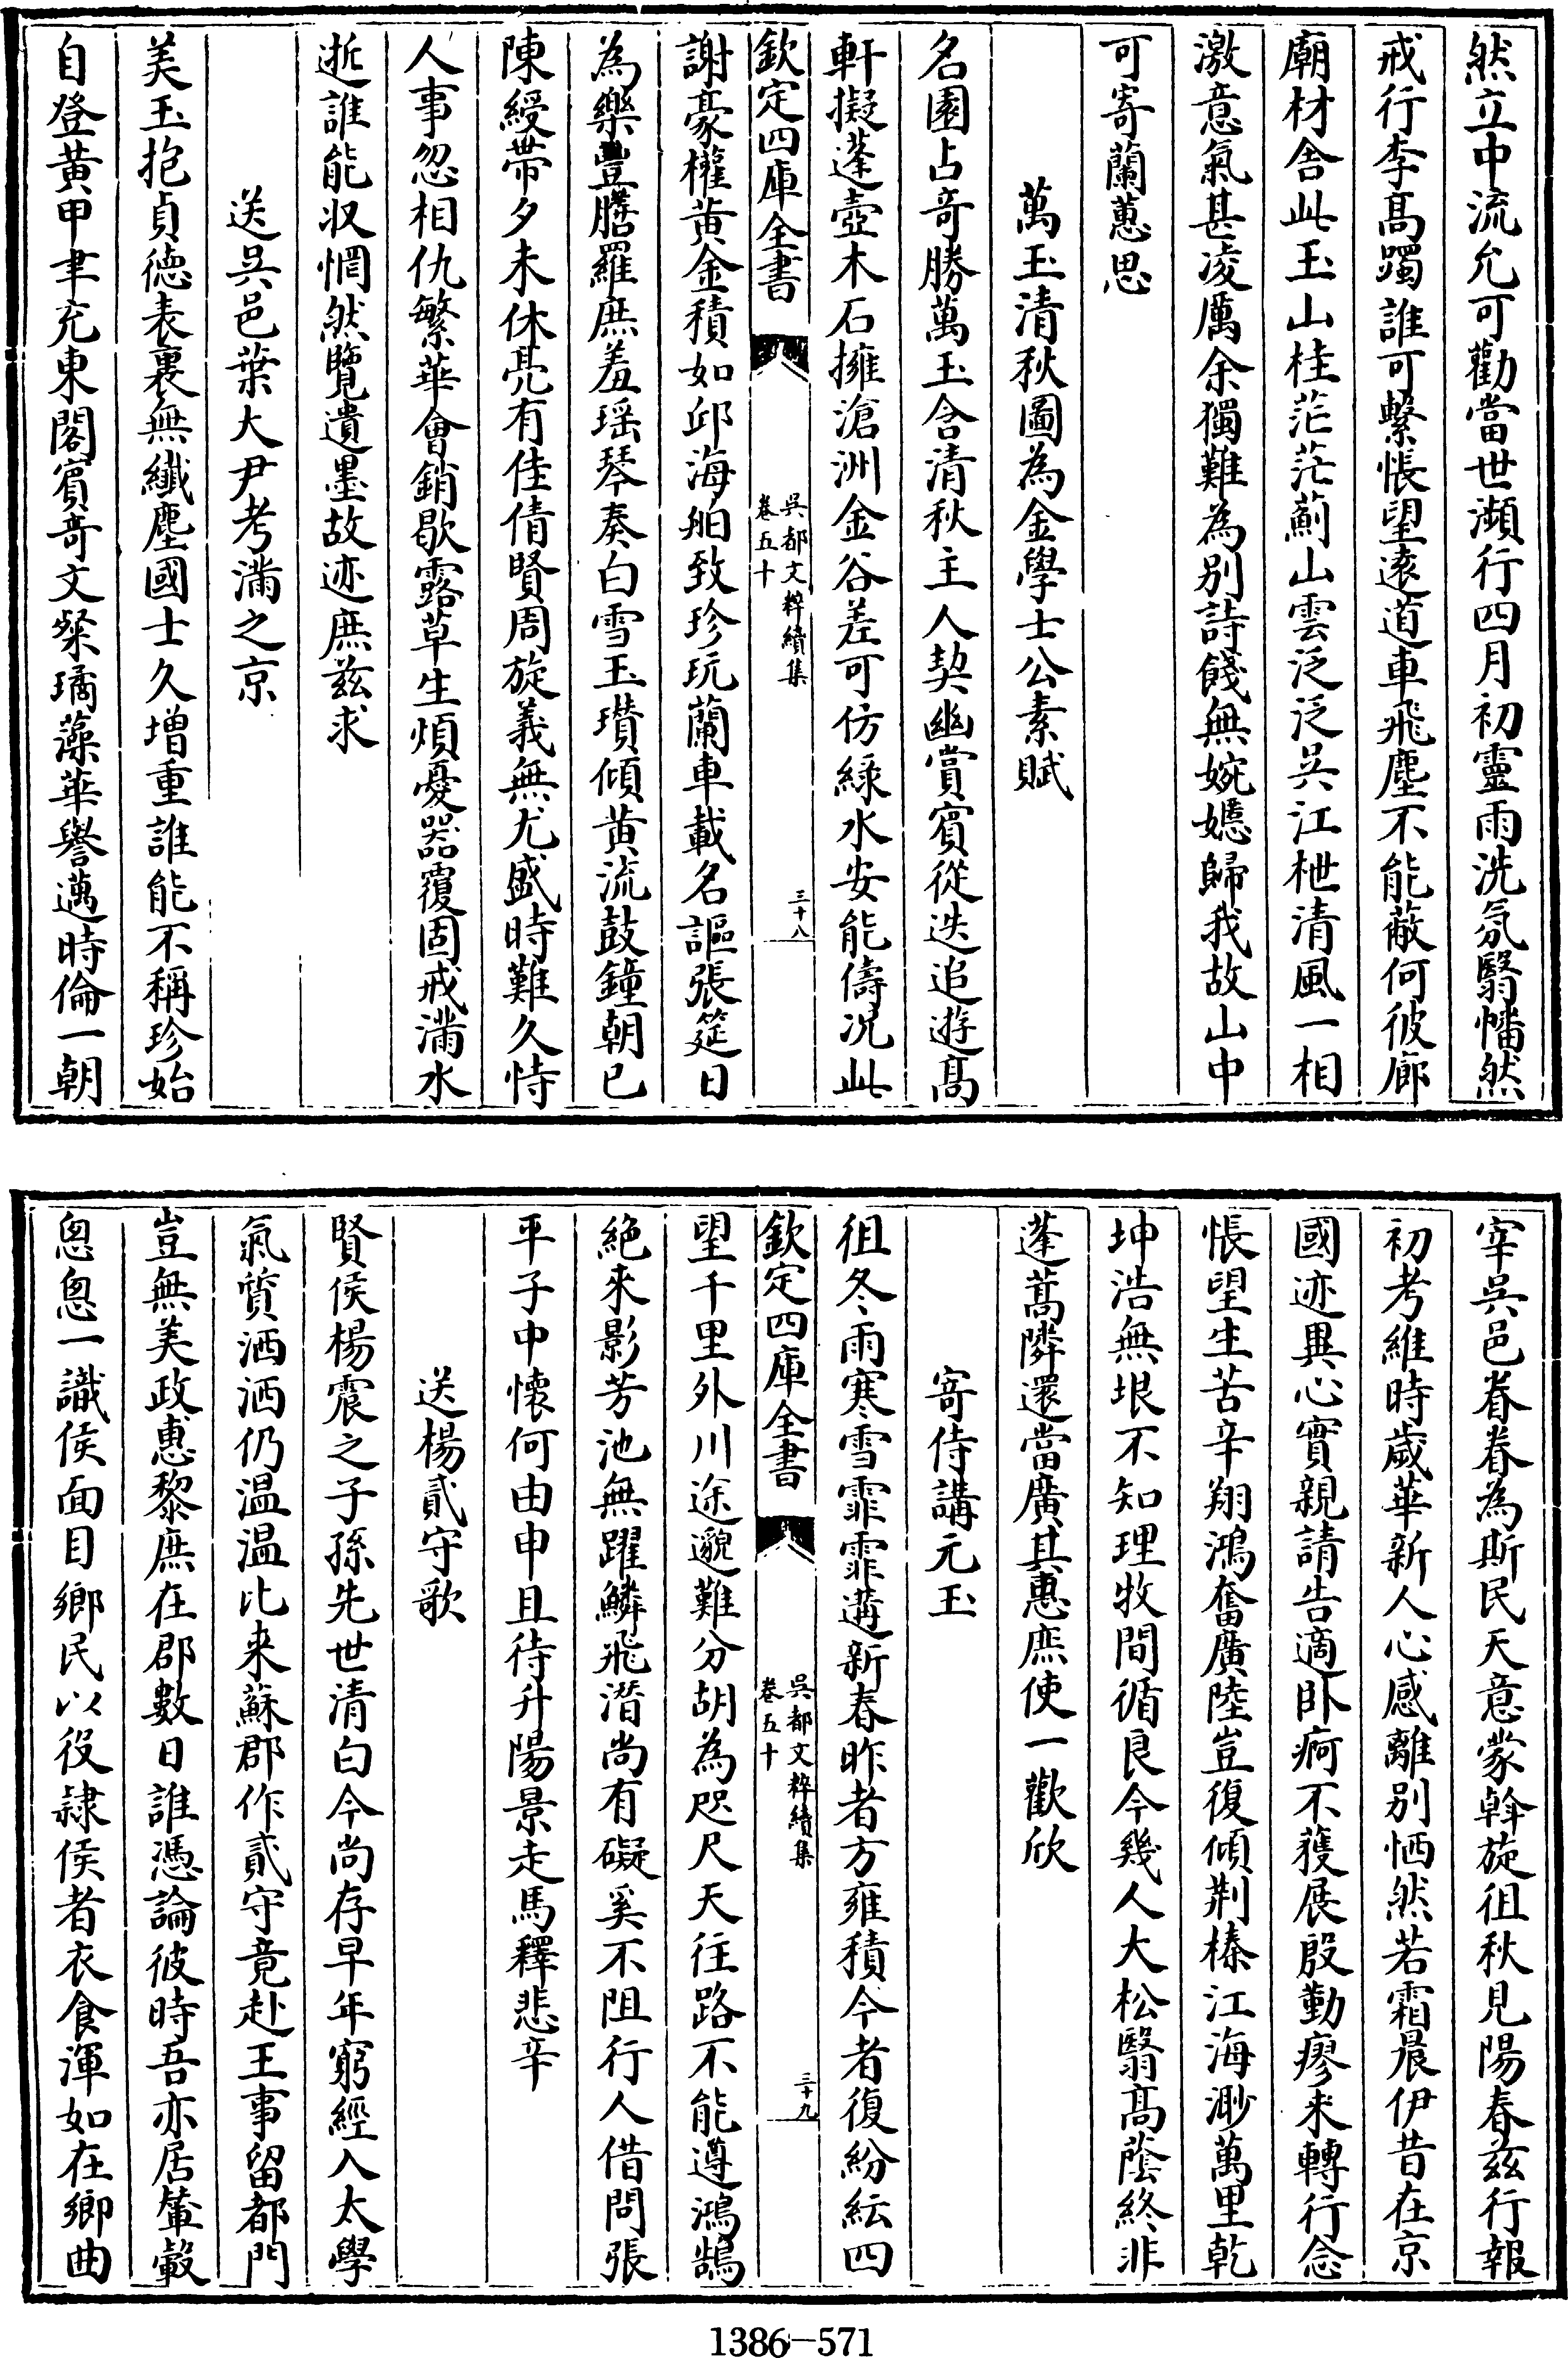 然立中流允可勸當世瀕行四月初靈雨洗氛翳幡然
戒行李髙躅誰可繫悵望逺道車飛塵不能蔽何彼廊
廟材舍此玉山桂茫茫薊山雲泛泛吳江枻清風一相
激意氣甚凌厲余獨難為别詩餞無婉嫕歸我故山中
可寄蘭蕙思
萬玉清秋圖為金學士公素賦
名園占竒勝萬玉含清秋主人契幽賞賓從迭追遊髙
軒擬蓬壺木石擁滄洲金谷差可仿緑水安能儔况此
欽定四庫全書
吳都文粹續集
卷五十
三十八
謝豪權黄金積如邱海舶致珍玩蘭車載名謳張筵日
為樂豐膳羅庶羞瑶琴奏白雪玉瓚傾黄流鼓鐘朝已
陳綬帶夕未休亮有佳倩賢周旋義無尤盛時難久恃
人事忽相仇繁華會銷歇露草生煩憂器覆固戒滿水
逝誰能収惘然覽遺墨故迹庶兹求
送吳邑葉大尹考滿之京
美玉抱貞徳表裏無纎塵國士久增重誰能不稱珍始
自登黄甲聿充東閣賓竒文粲璚藻華譽邁時倫一朝
宰吳邑眷眷為斯民天意蒙斡旋徂秋見陽春兹行報
初考維時歲華新人心感離别恓然若霜晨伊昔在京
國迹異心實親請告適卧痾不獲展殷勤瘳来轉行念
悵望生苦辛翔鴻奮廣陸豈復傾荆榛江海渺萬里乾
坤浩無垠不知理牧間循良今幾人大松翳髙蔭終非
蓬蒿隣還當廣其惠庶使一歡欣
寄侍講元玉
徂冬雨寒雪霏霏遘新春昨者方雍積今者復紛紜四
欽定四庫全書
吳都文粹續集
卷五十
三十九
望千里外川途邈難分胡為咫尺天往路不能遵鴻鵠
絶來影芳池無躍鱗飛潜尚有礙奚不阻行人借問張
平子中懷何由申且待升陽景走馬釋悲辛
送楊貳守歌
賢侯楊震之子孫先世清白今尚存早年窮經入太學
氣質洒洒仍温温比来蘇郡作貳守竟赴王事留都門
豈無美政惠黎庶在郡數日誰憑論彼時吾亦居輦轂
匆匆一識侯面目鄉民以役隷侯者衣食渾如在鄉曲
1386-571